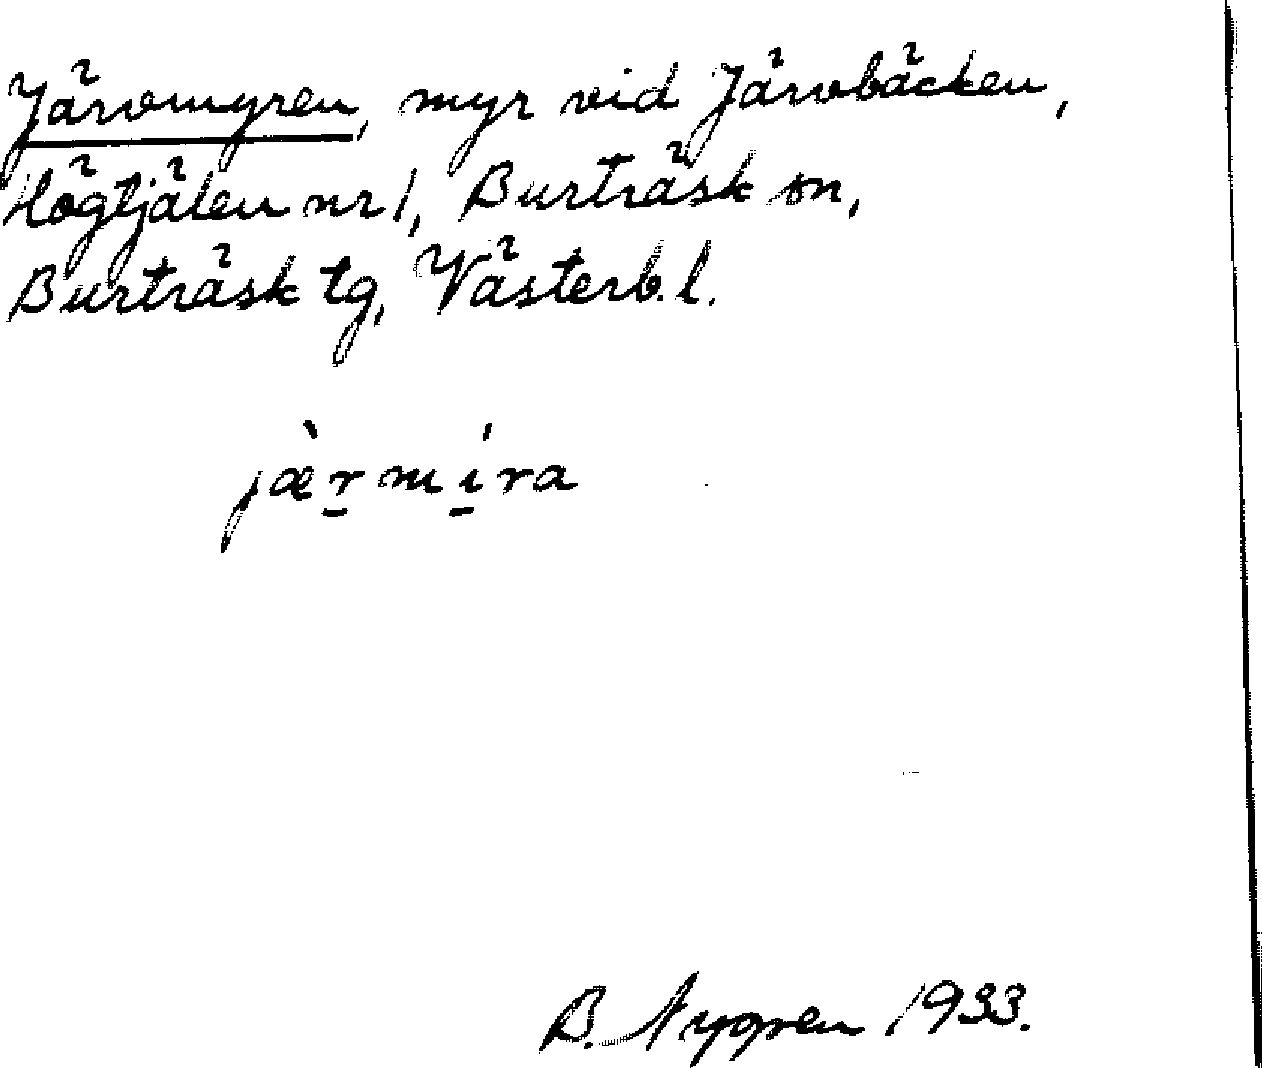 Järvmyren, myr vid Järvbäcken,
Högtjälen nr 1, Burträsk sn,
Burträsk tg, Västerb. l.
jæ̀r̲mí̲ra
B. Nygren 1933.